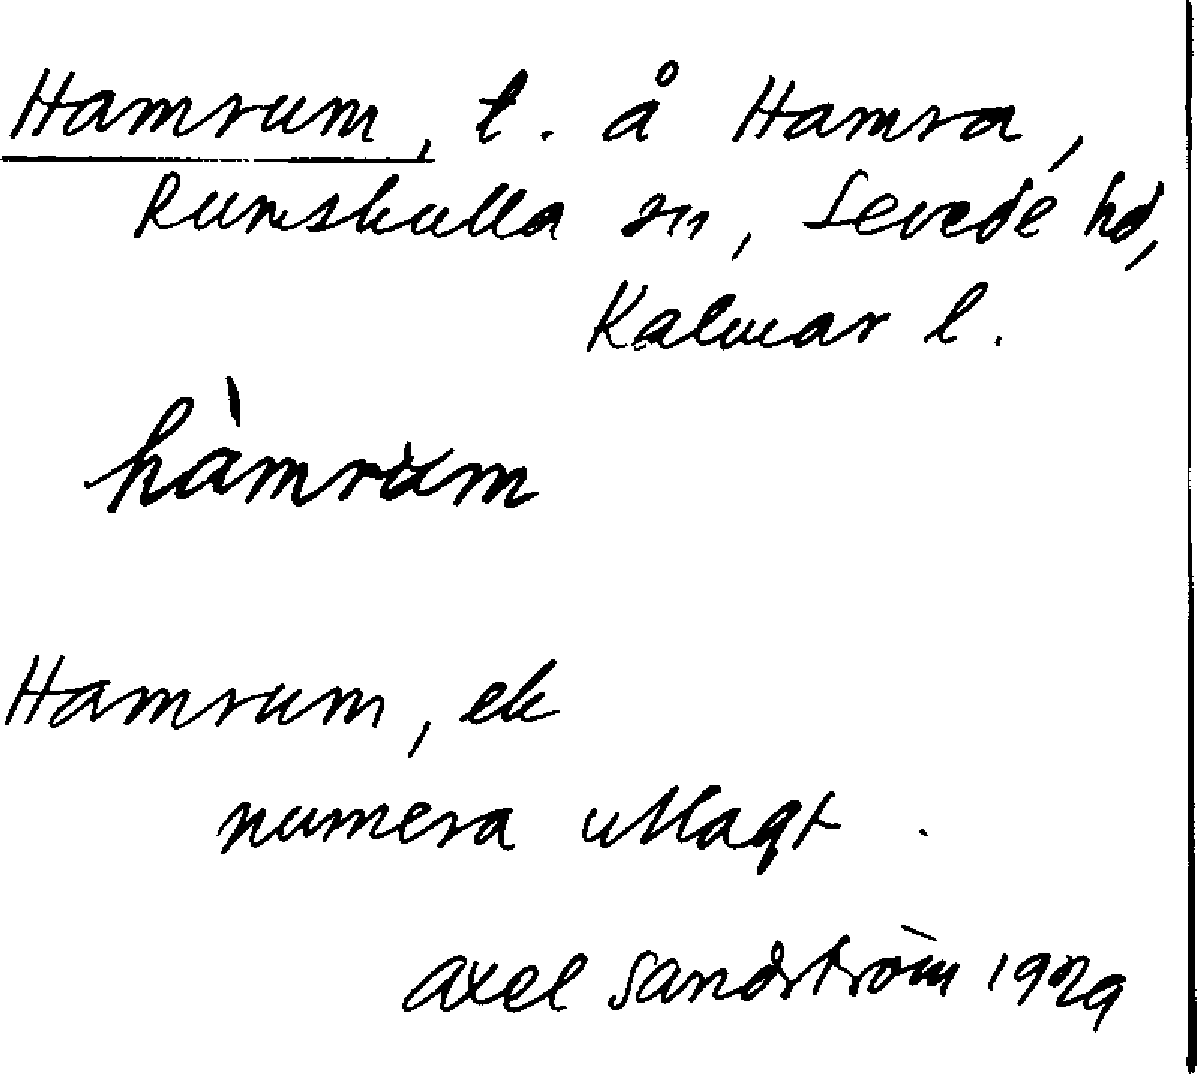 Hamrum, t. å Hamra,
Rumskulla sn, Sevede hd,
Kalmar l.
hàmrùm
Hamrum, ek
numera utlagt.
Axel Sandström 1929